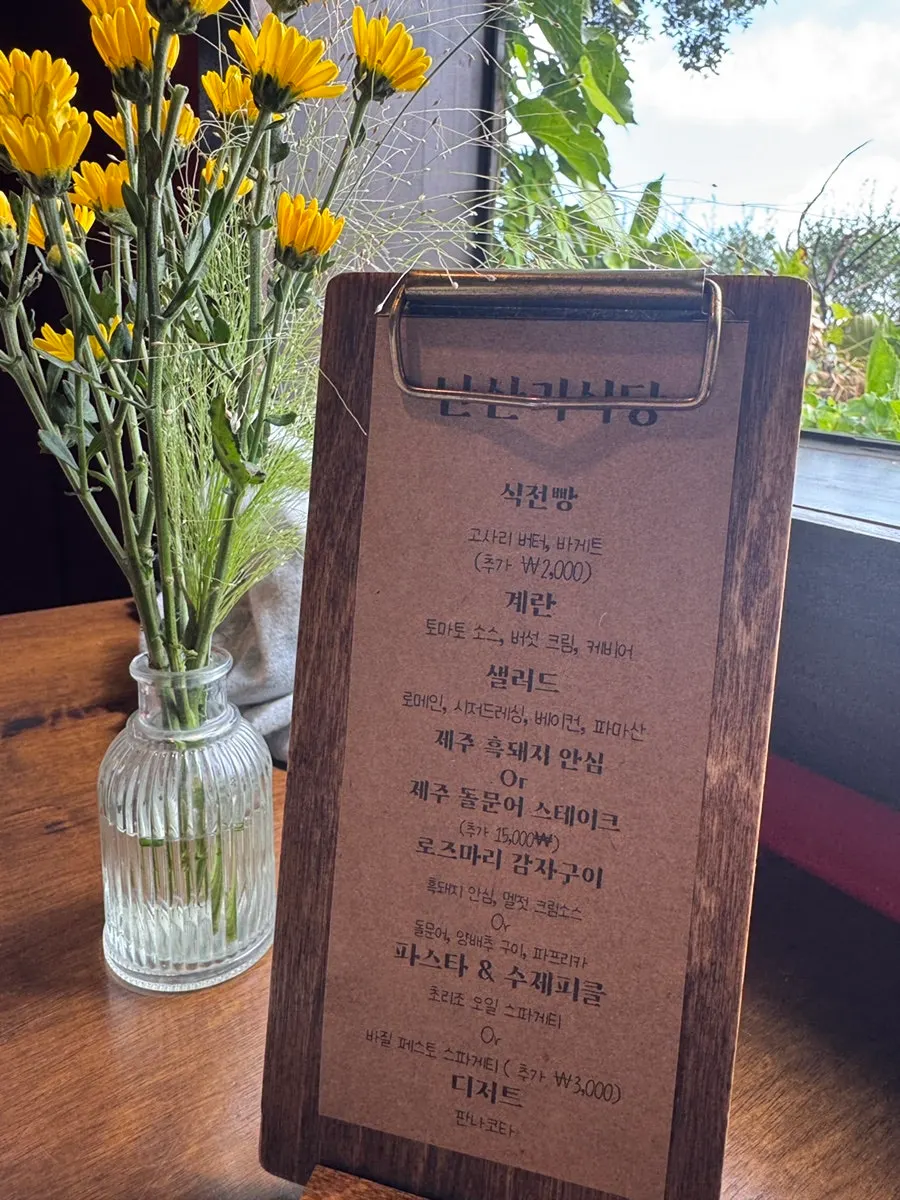 난산리식당
식전빵
고사리 버터, 바게트
(추가 ₩2,000)
계란
토마토 소스, 버섯 크림, 케비어
샐러드
로메인, 시저드레싱, 베이컨, 파마산
제주 흑돼지 안심
Or
제주 돌문어 스테이크
(추가 15,000₩)
로즈마리 감자구이
흑돼지 안심, 멜젓 크림소스
Or
돌문어, 양배추 구이, 파프리카
파스타 & 수제피클
초리조 오일 스파게티
Or
바질 페스토 스파게티 ( 추가 ₩3,000)
디저트
판나코타